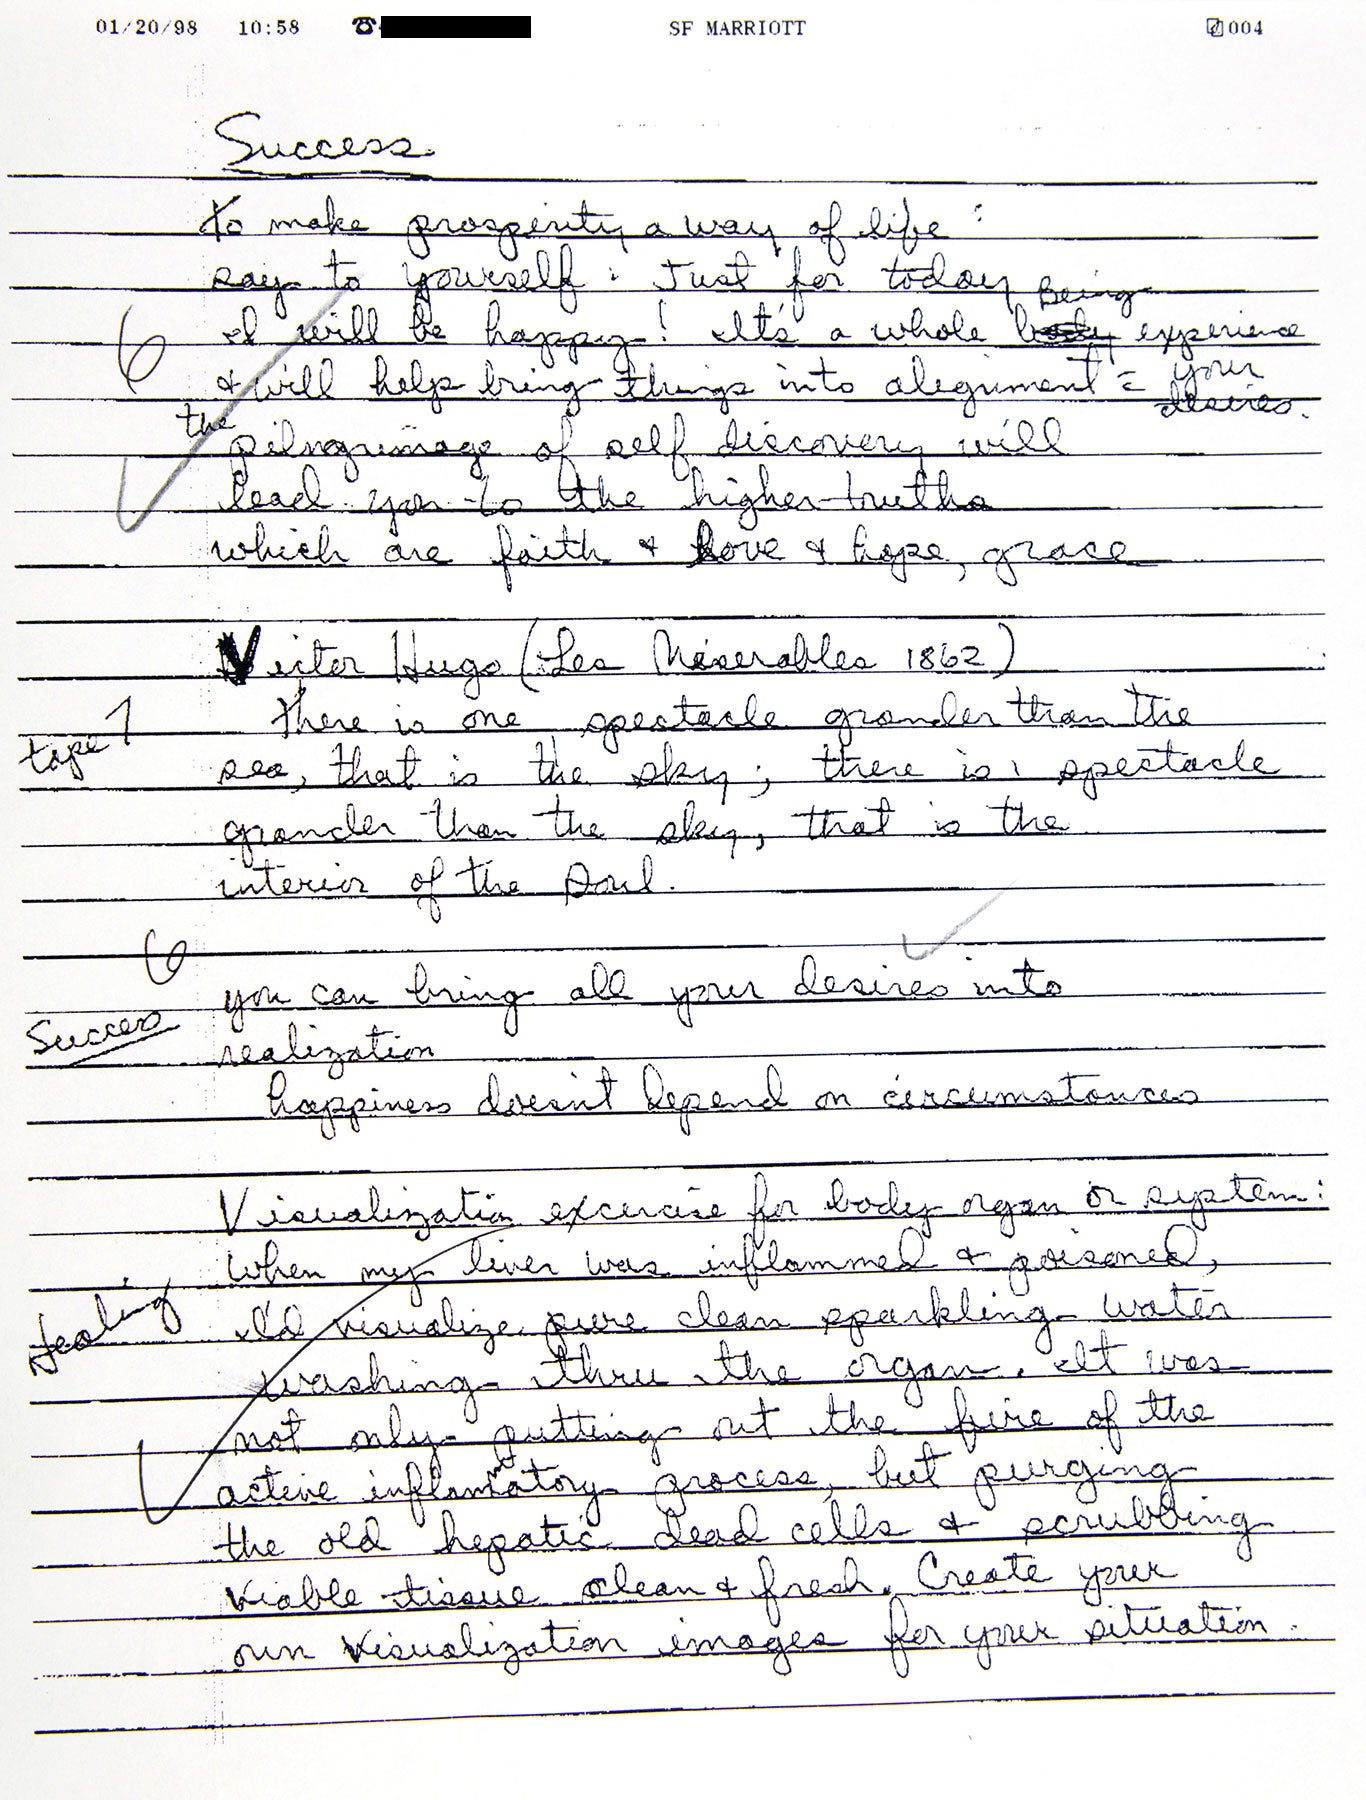 01/20/98 10:58 SF MARRIOTT 004
Success
To make prosperity a way of life:
say to yourself: Just for today
Being
6 I will be happy! It's a whole body experience
& will help bring things into alegnment = your
desires.
the pilngrimage of self discovery will
lead you to the higher truths
which are faith & Love & hope, grace
Victor Hugo (Les Miserables 1862)
There is one spectacle grander than the
tape 7
sea, that is the sky; there is 1 spectacle
grander than the sky, that is the
interior of the soul.
6
you can bring all your desires into
Success
realization
happiness doesn't depend on circumstances
Visualization excercise for body organ or system:
When my liver was inflammed & poisoned,
Healing
I'd visualize pure clean sparkling water
washing thru the organ. It was
not only putting out the fire of the
active inflammatory process, but purging
the old hepatic dead cells & scrubbing
viable tissue clean & fresh. Create your
own visualization images for your situation.